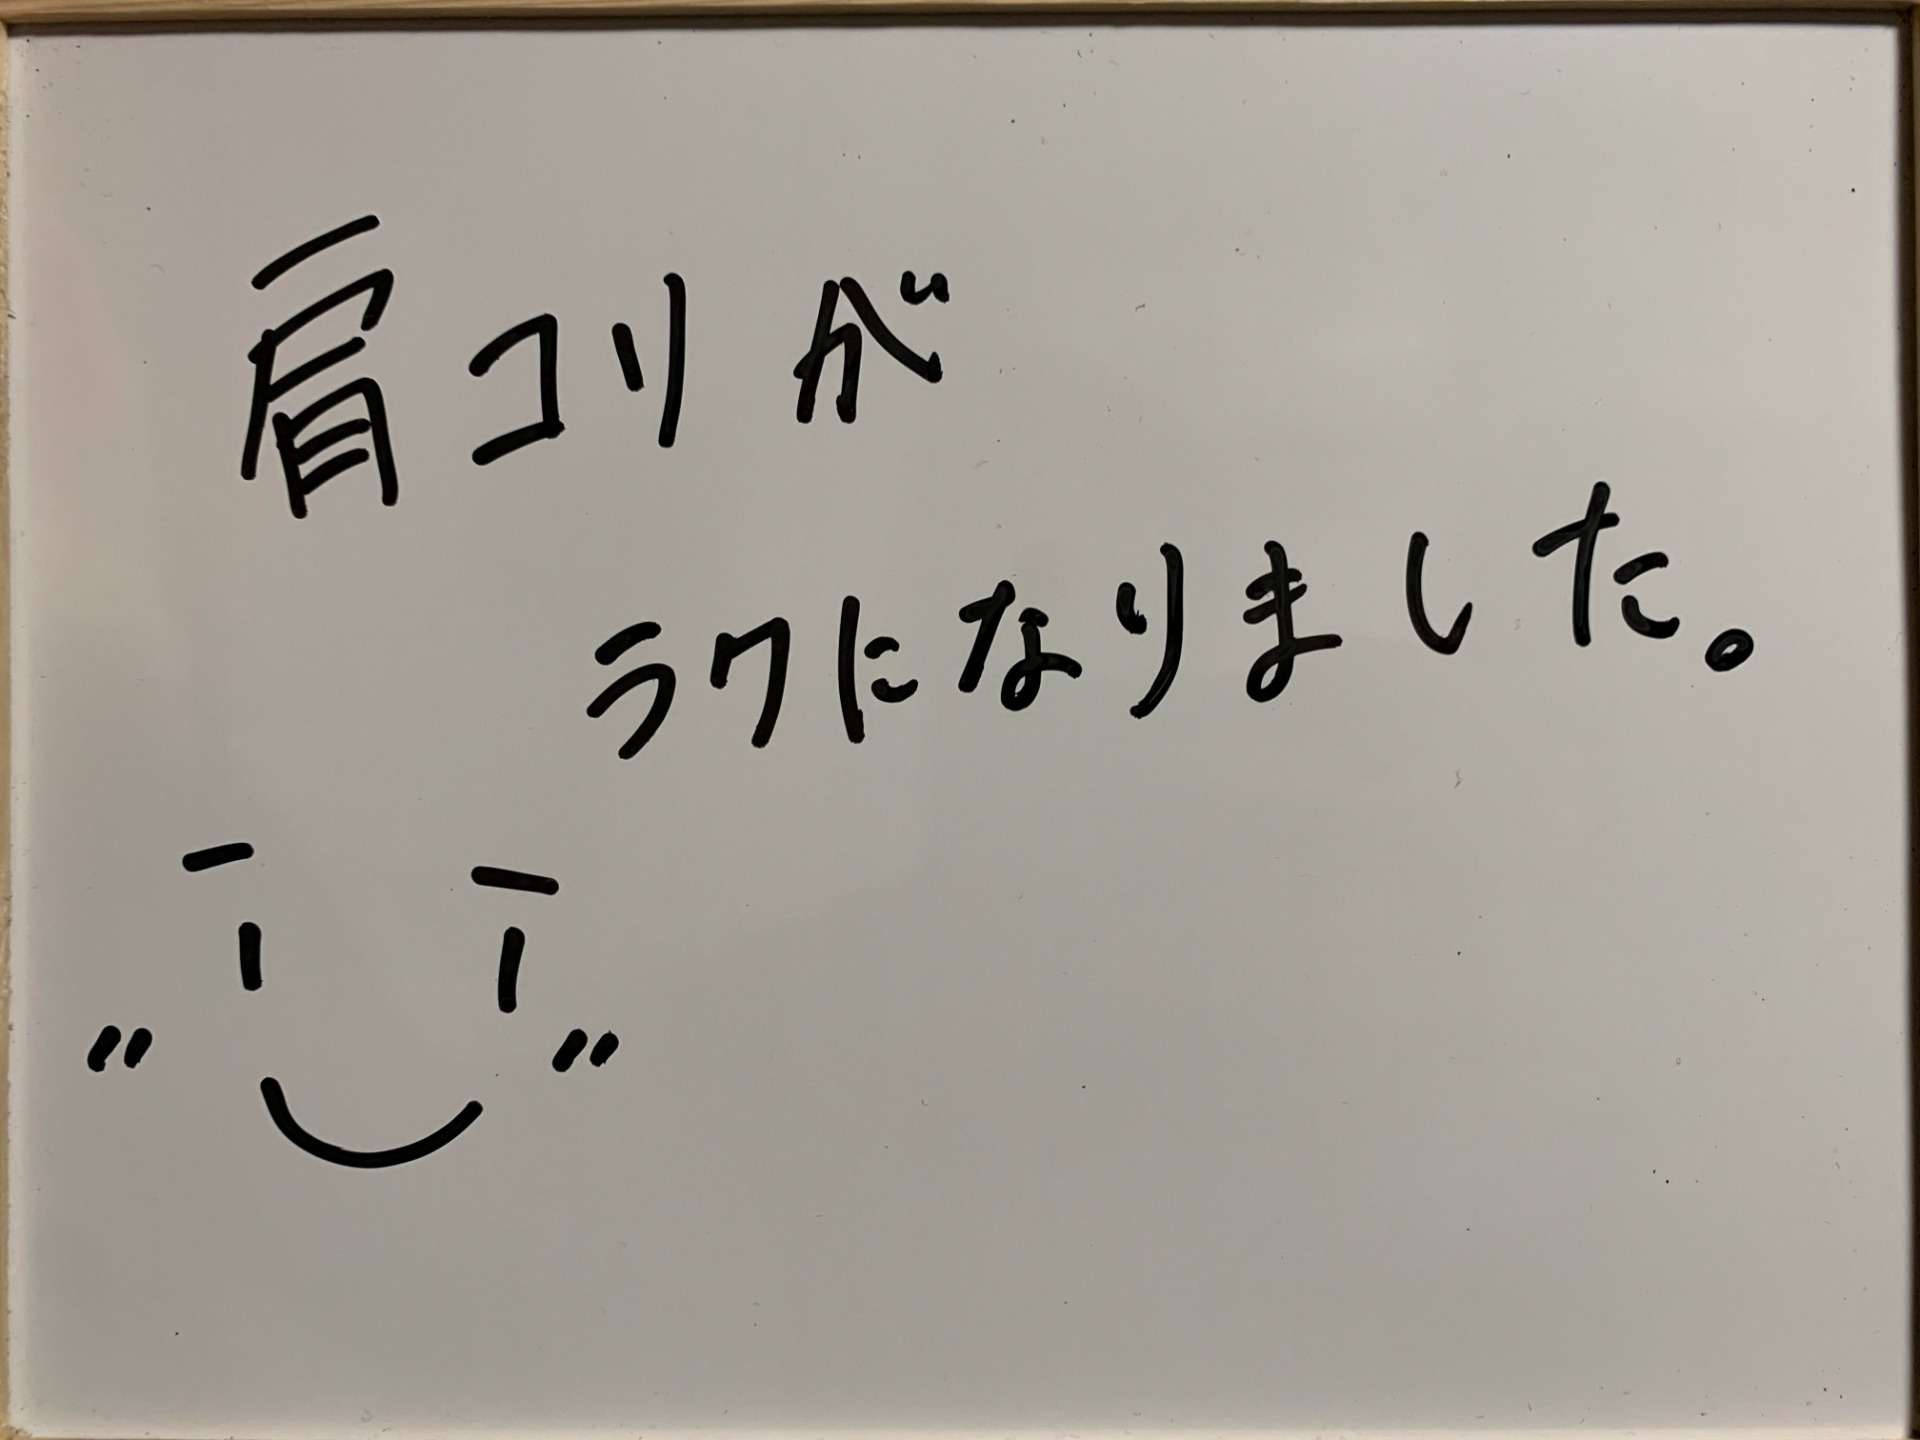 肩コリが
ラクになりました。